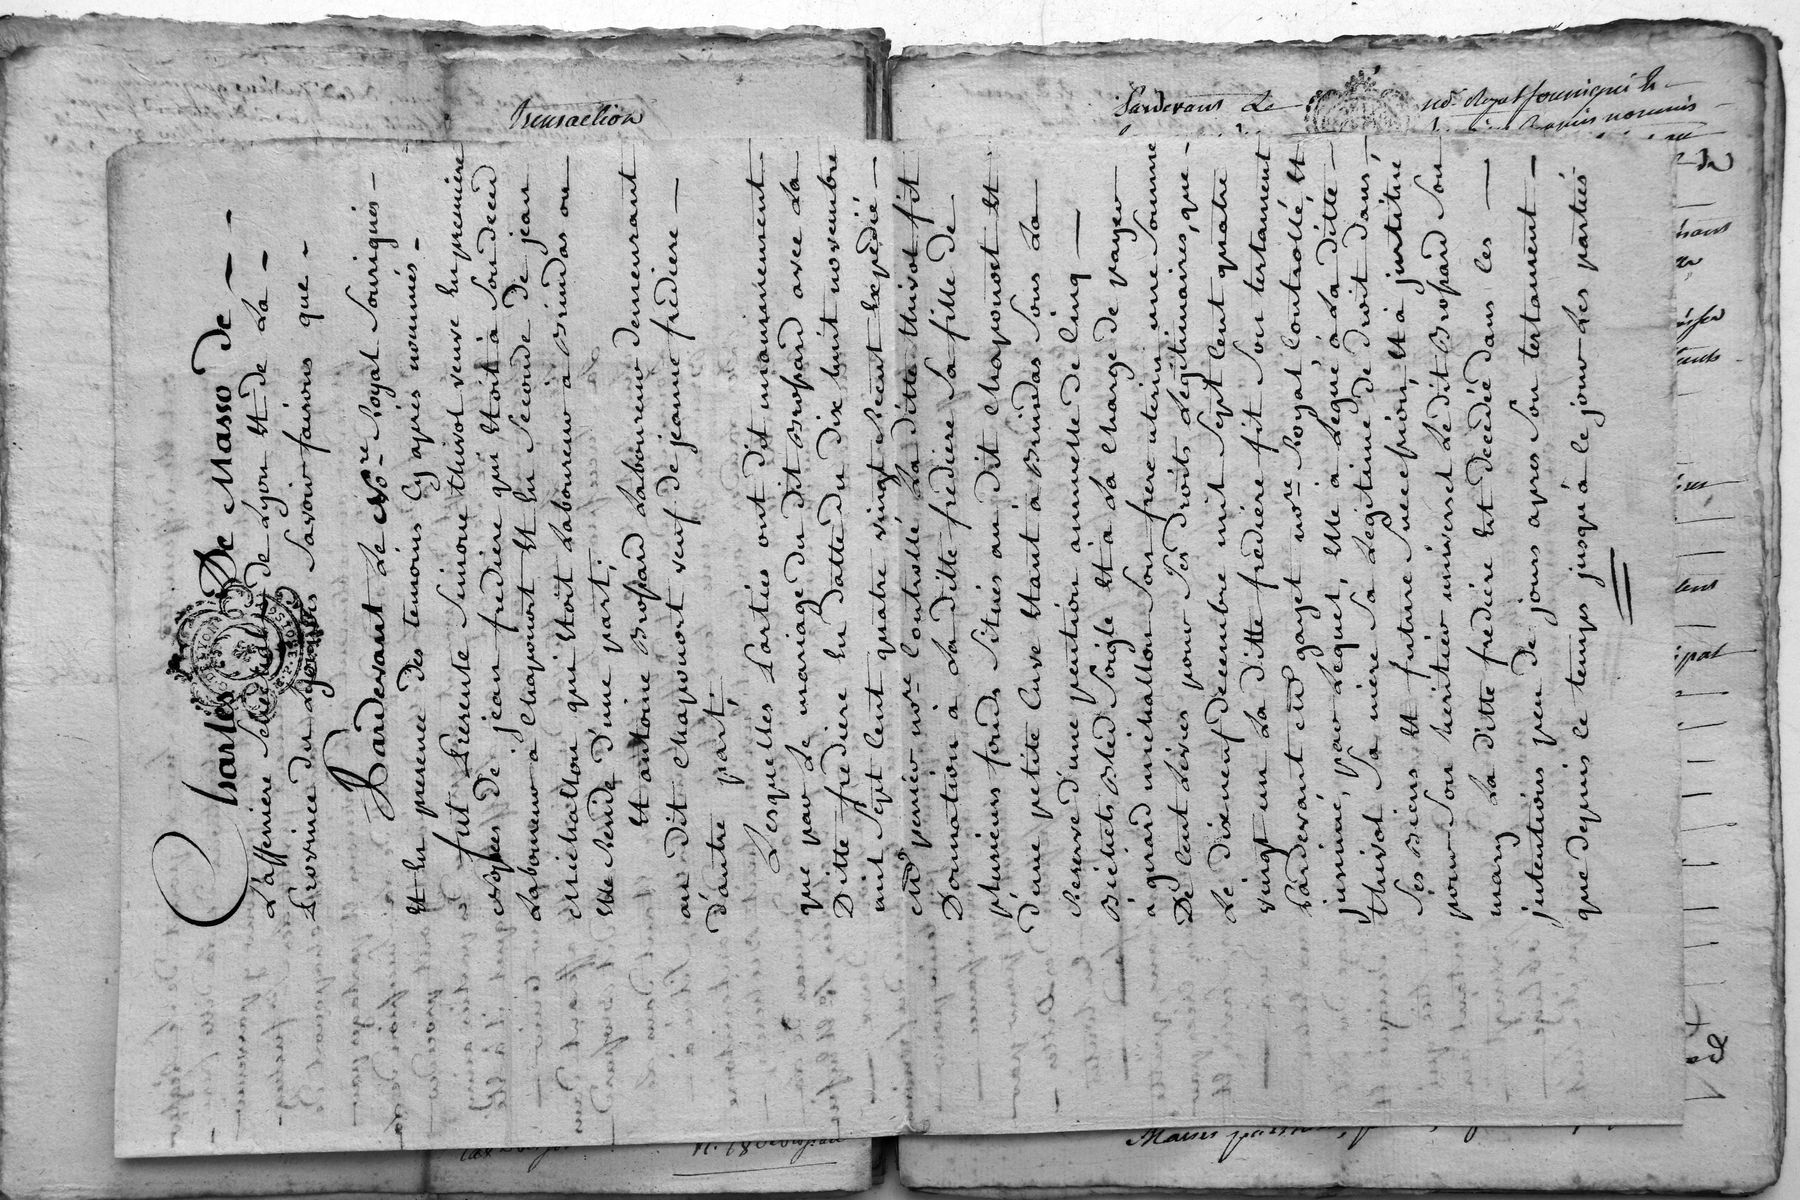 Transaction
Pardevant Le no.re Royal soussigné Et
cy apres nommés
Charles De Masso de
Laferriere Senechal de Lyon Et de La
Province du Lyonnois savoir faisons que
Pardevant Le No.re Royal soussignés
Et En presence des temoins Cy apres nommés
fut Presente Simone thivot veuve En premiere
Nopces de jean frediere qui Etoit à son deced
Laboureur à Chaponost Et En Seconde de jean
Michallon qui Etoit Laboureur à Brindas ou
Elle Reside d'une part;
Et antoine Brossard Laboureur demeurant
au dit Chaponost veuf de jeanne frediere
d'autre part.
Lesquelles Parties ont dit unanimement
que par Le mariage du dit Brossard avec La
Ditte frediere En Datte du dix huit novembre
mil Sept Cent quatre vingt Recut Expedié
Me perrier no.re Controllé La ditte thivot fit
Donnation à La ditte frediere Sa fille de
plusieurs fonds Situés au dit Chaponost Et
d'une petite Cuve Etant à Brindas Sous La
Reserve d'une pention annuelle de Cinq
Bichets Bled Soigle Et à La Charge de payer
à girard michallon Son frere uterin une Somme
De Cent Livres pour Ses droits Legitimaires, que
Le dixneuf decembre mil Sept Cent quatre
vingt un La ditte frediere fit Son testament
Pardevant Me gayet no.re Royal Controllé, Et
jnsinué, par Lequel, Elle a Legué à La ditte
thivot Sa mere Sa Legitime de droit dans
Ses Biens Et future Succession, Et a jnstitué
pour Son heritier universel Le dit Brossard Son
mary La ditte frediere Est decedée dans ces
jntentions peu de jours apres Son testament
que depuis ce temps jusqu'à ce jour Les parties